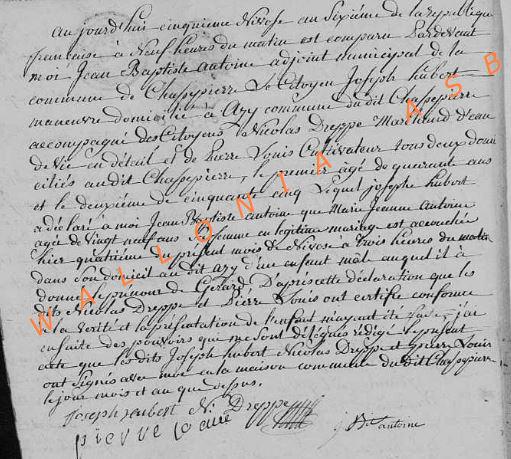 Aujourd'hui cinquieme Nivose an Sixiéme de la republique
francaise à Neuf heures du matin est comparu Pardevant
moi Jean Baptiste Antoine adjoint municipal de la
commune de Chassepierre Le Citoyen Joseph hubert
manœuvre domicilié à Azy commune du dit Chassepierre
accompagné des Citoyens Nicolas Dreppe Marchand d'eau
de Vie en détail et de Pierre Louis Cultivateur tous deux domi
ciliés audit Chassepierre, le premier agé de quarante ans
et le deuxiéme de cinquante cinq Lequel joseph hubert
a déclaré à moi Jean Baptiste antoine que Marie Jeanne Antoine
agée de Vingt neuf ans Sa femme en légitime mariage est accouchée
hier quatriéme du présent mois de Nivose à trois heures du matin
dans Son domicil audit azy d'un enfant mâl auquel il à
donné le prenom de Gérard D'après cette déclaration que les
dits Nicolas Dreppe et Pierre Louis ont certifié conforme
à la Verité et la présentation de l'enfant m'ayant été faite, j'ai
en suite des pouvoirs qui me sont délégués rédigé le présent
acte que lesdits Joseph hubert Nicolas Dreppe et pierre Louis
ont Signés avec moi en la maison commune du dit Chassepierre
le jour mois et an que dessus.
Joseph hubert N Dreppe
pierre
j Bte antoine
WALLONIA ASB